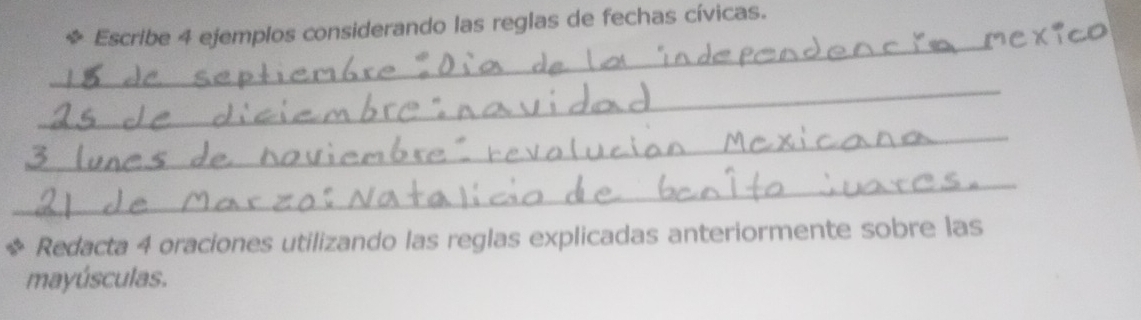 ❖ Escribe 4 ejemplos considerando las reglas de fechas cívicas.
15 de septiembre: Dia de la independencia mexico
25 de diciembre: navidad
3 lunes de noviembre: revalucian Mexicana
21 de Marzo: Natalicio de benito juares.
❖ Redacta 4 oraciones utilizando las reglas explicadas anteriormente sobre las
mayúsculas.